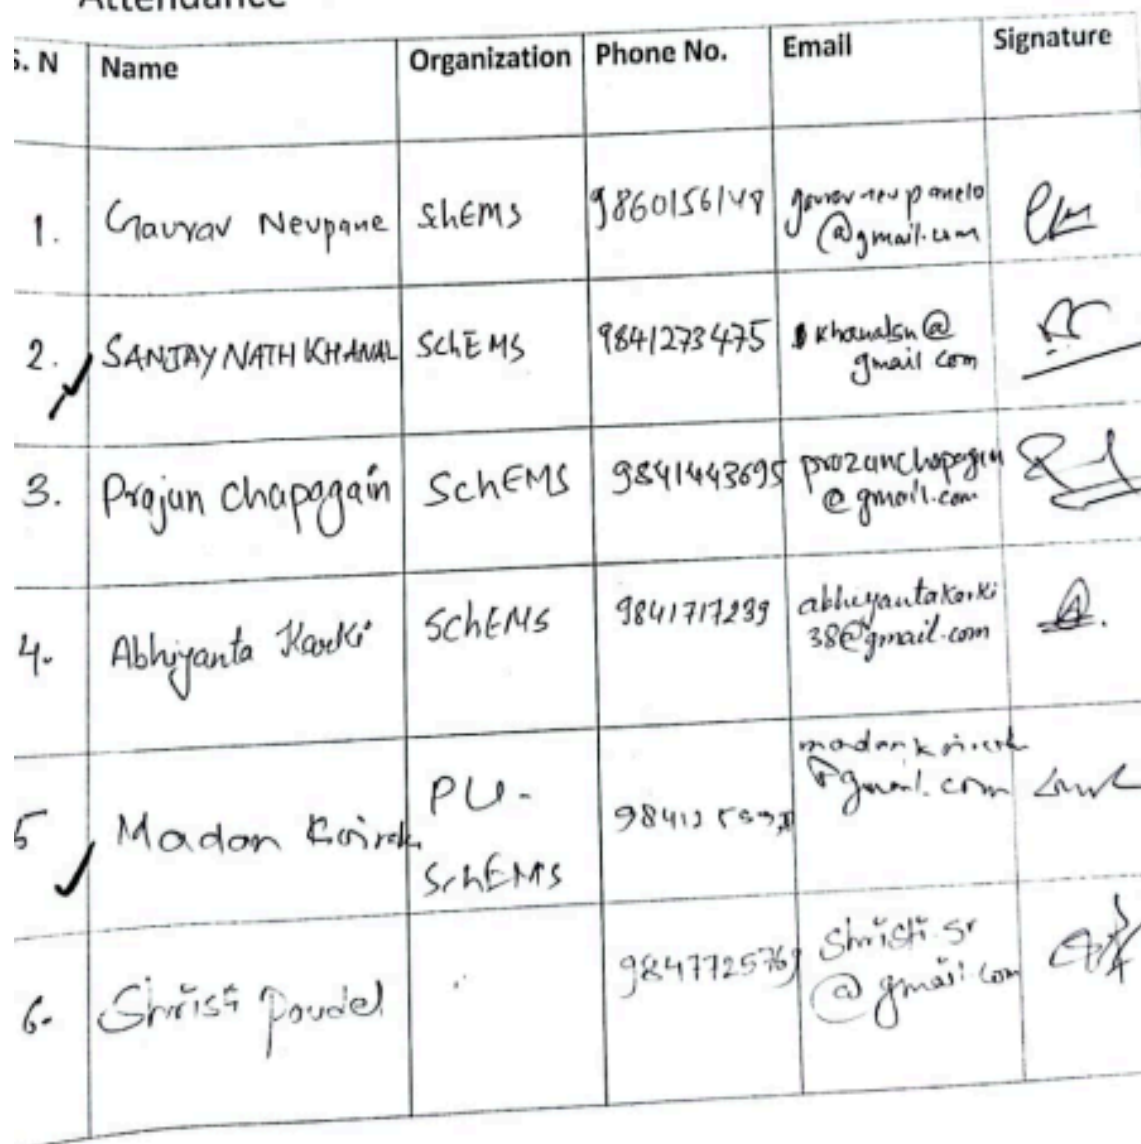 Attendance
S. N Name Organization Phone No. Email Signature
1. Gaurav Neupane SchEMS 9860156148 gauravneupane10
@gmail.com
2. SANJAY NATH KHANAL SchEMS 9841273475 khanalsn@
gmail com
3. Prajun Chapagain SchEMS 9841443695 prozanchapagain
@gmail.com
4. Abhiyanta Karki SchEMS 9841717239 abhiyantakarki
38@gmail.com
5 Madan Koirala PU-
SchEMS
@gmail.com
6. Shristi Poudel 9847725769 Shristi.sr
@gmail.com